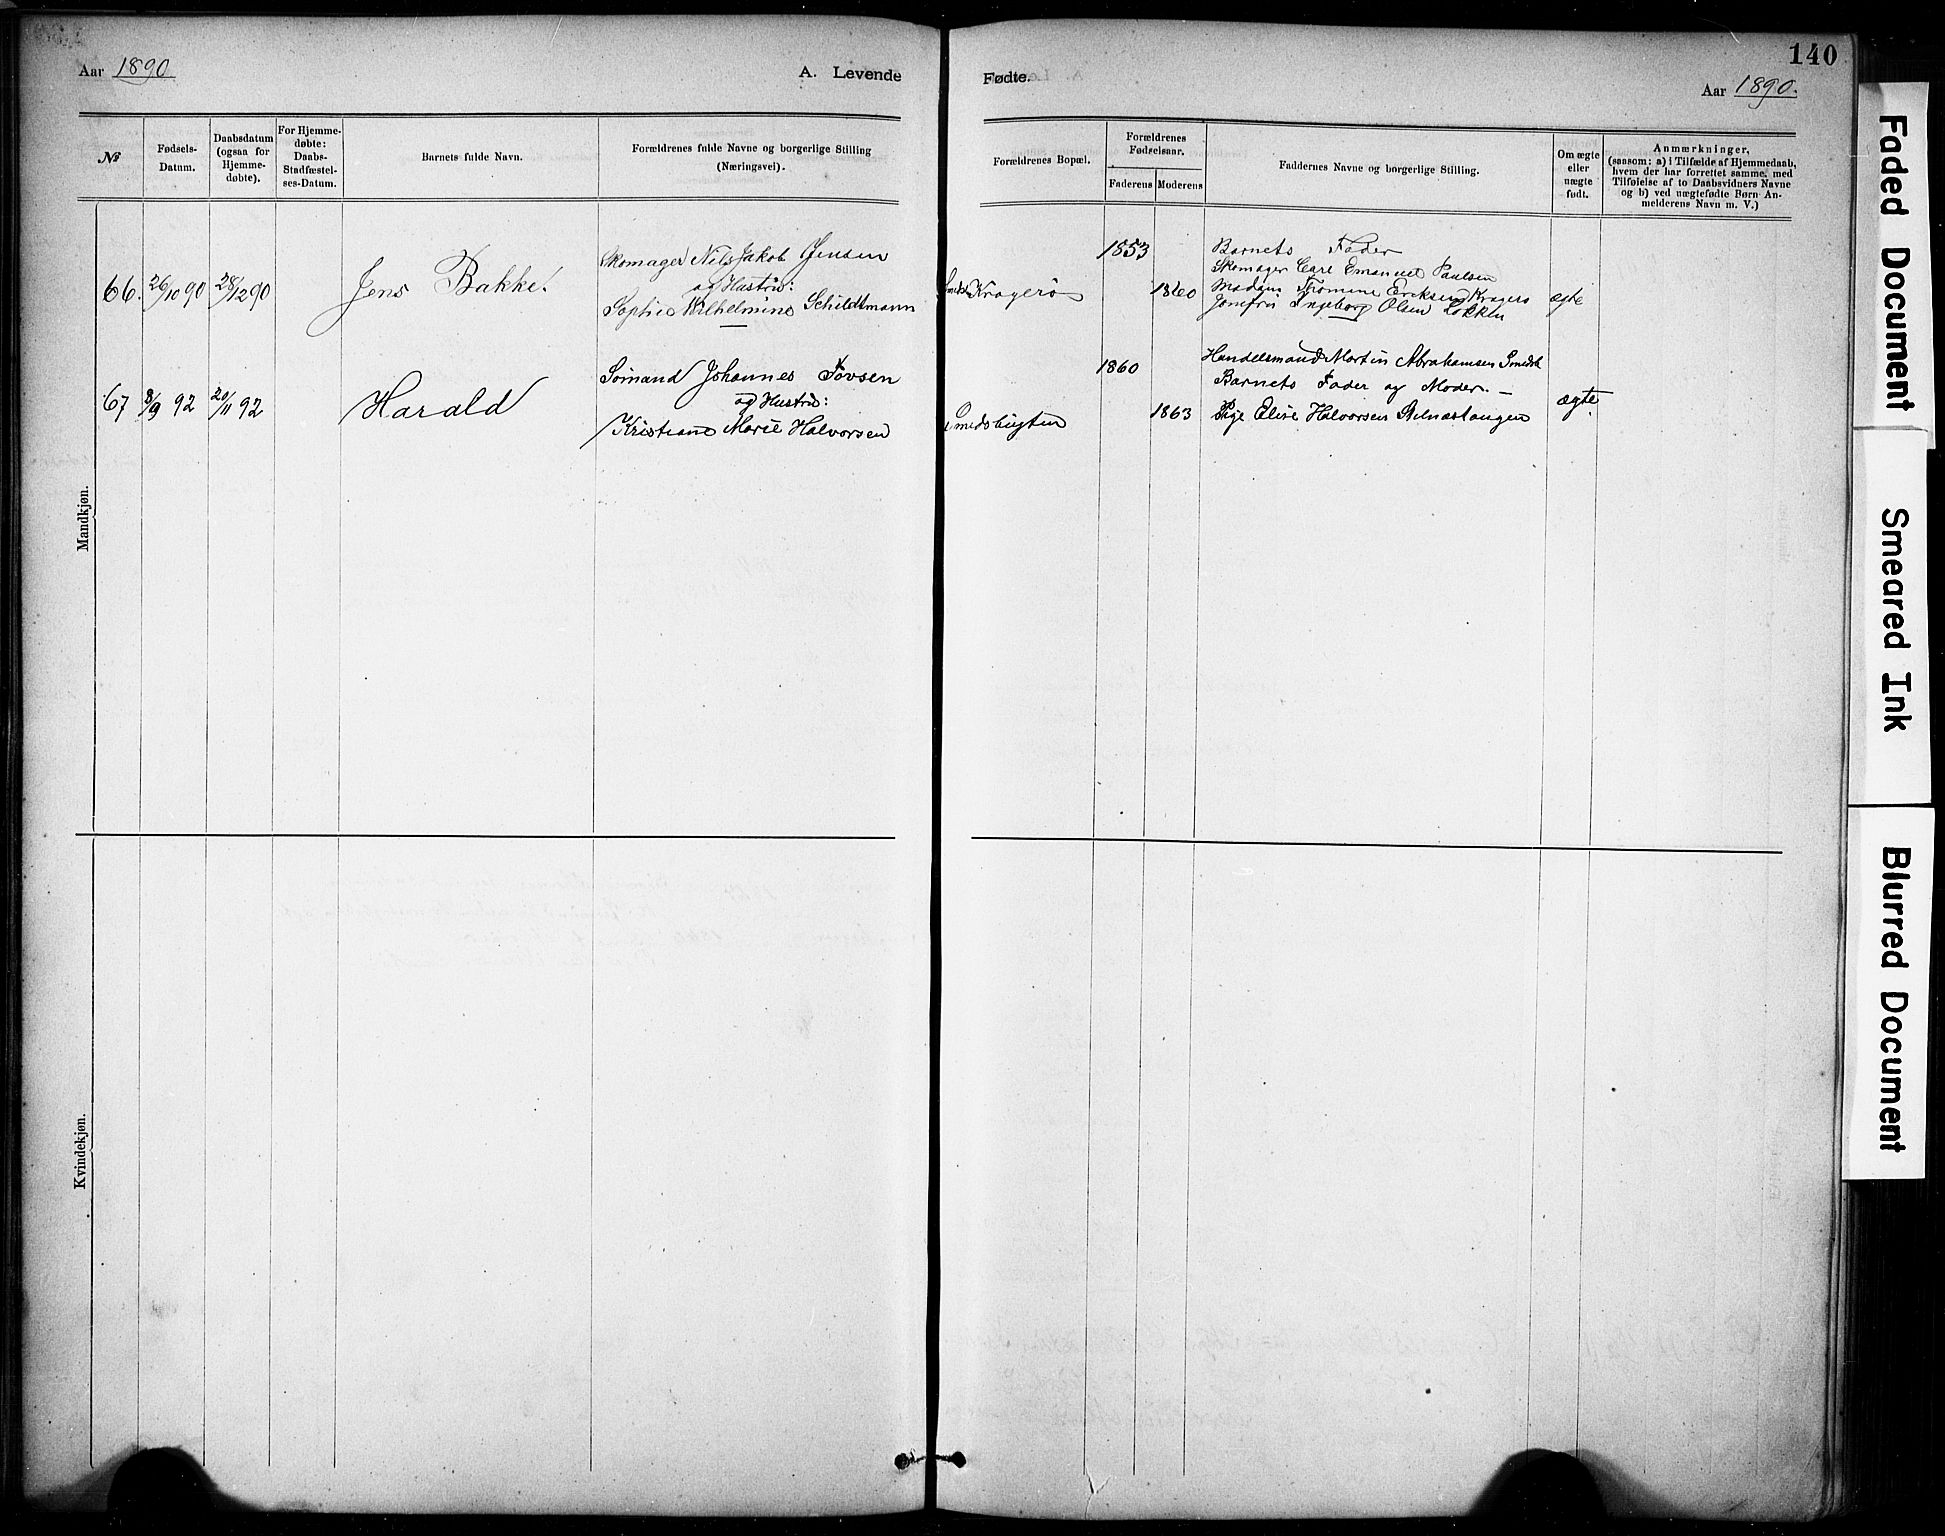 140
Aar 1890
A. Levende
Fødte.
Aar 1890.
№
Fødsels-
Datum.
Daabsdatum
(ogsaa for
Hjemme-
døbte).
For Hjemme-
døbte:
Daabs-
Stadfæstel-
ses-Datum.
Barnets fulde Navn.
Forældrenes fulde Navne og borgerlige Stilling
(Næringsvei).
Forældrenes Bopæl.
Forældrenes
Fødselsaar.
Faderens
Moderens
Faddernes Navne og borgerlige Stilling.
Om ægte
eller
uægte
født.
Anmærkninger,
(saasom: a) i Tilfælde af Hjemmedaab,
hvem der har forrettet samme, med
Tilføielse af to Daabsvidners Navne
og b) ved uægtefødte Børn An-
melderens Navn m. V.)
Mandkjøn.
66. 26/10 90 28/12 90 Jens Bakke.
Skomager Nils Jakob Jensen
og Hustru:
Sophie Wilhelmine Schildtmann
Kragerø
1853
1860
Barnets Fader
Skomager Carl Emanuel Paulsen
Madam Thomine Eriksen Kragerø
Jomfru Ingeborg Olsen Løkken
ægte
67 8/9 92 20/11 92 Harald
Sømand Johannes Tovsen
og Hustru:
Kristiane Marie Halvorsen
Smedsbugten
1860
1863
Handelsmand Martin Abrahamsen Smedsb
Barnets Fader og Moder. —
Pige Elise Halvorsen
ægte.
Kvindekjøn.
Faded Document
Smeared Ink
Blurred Document